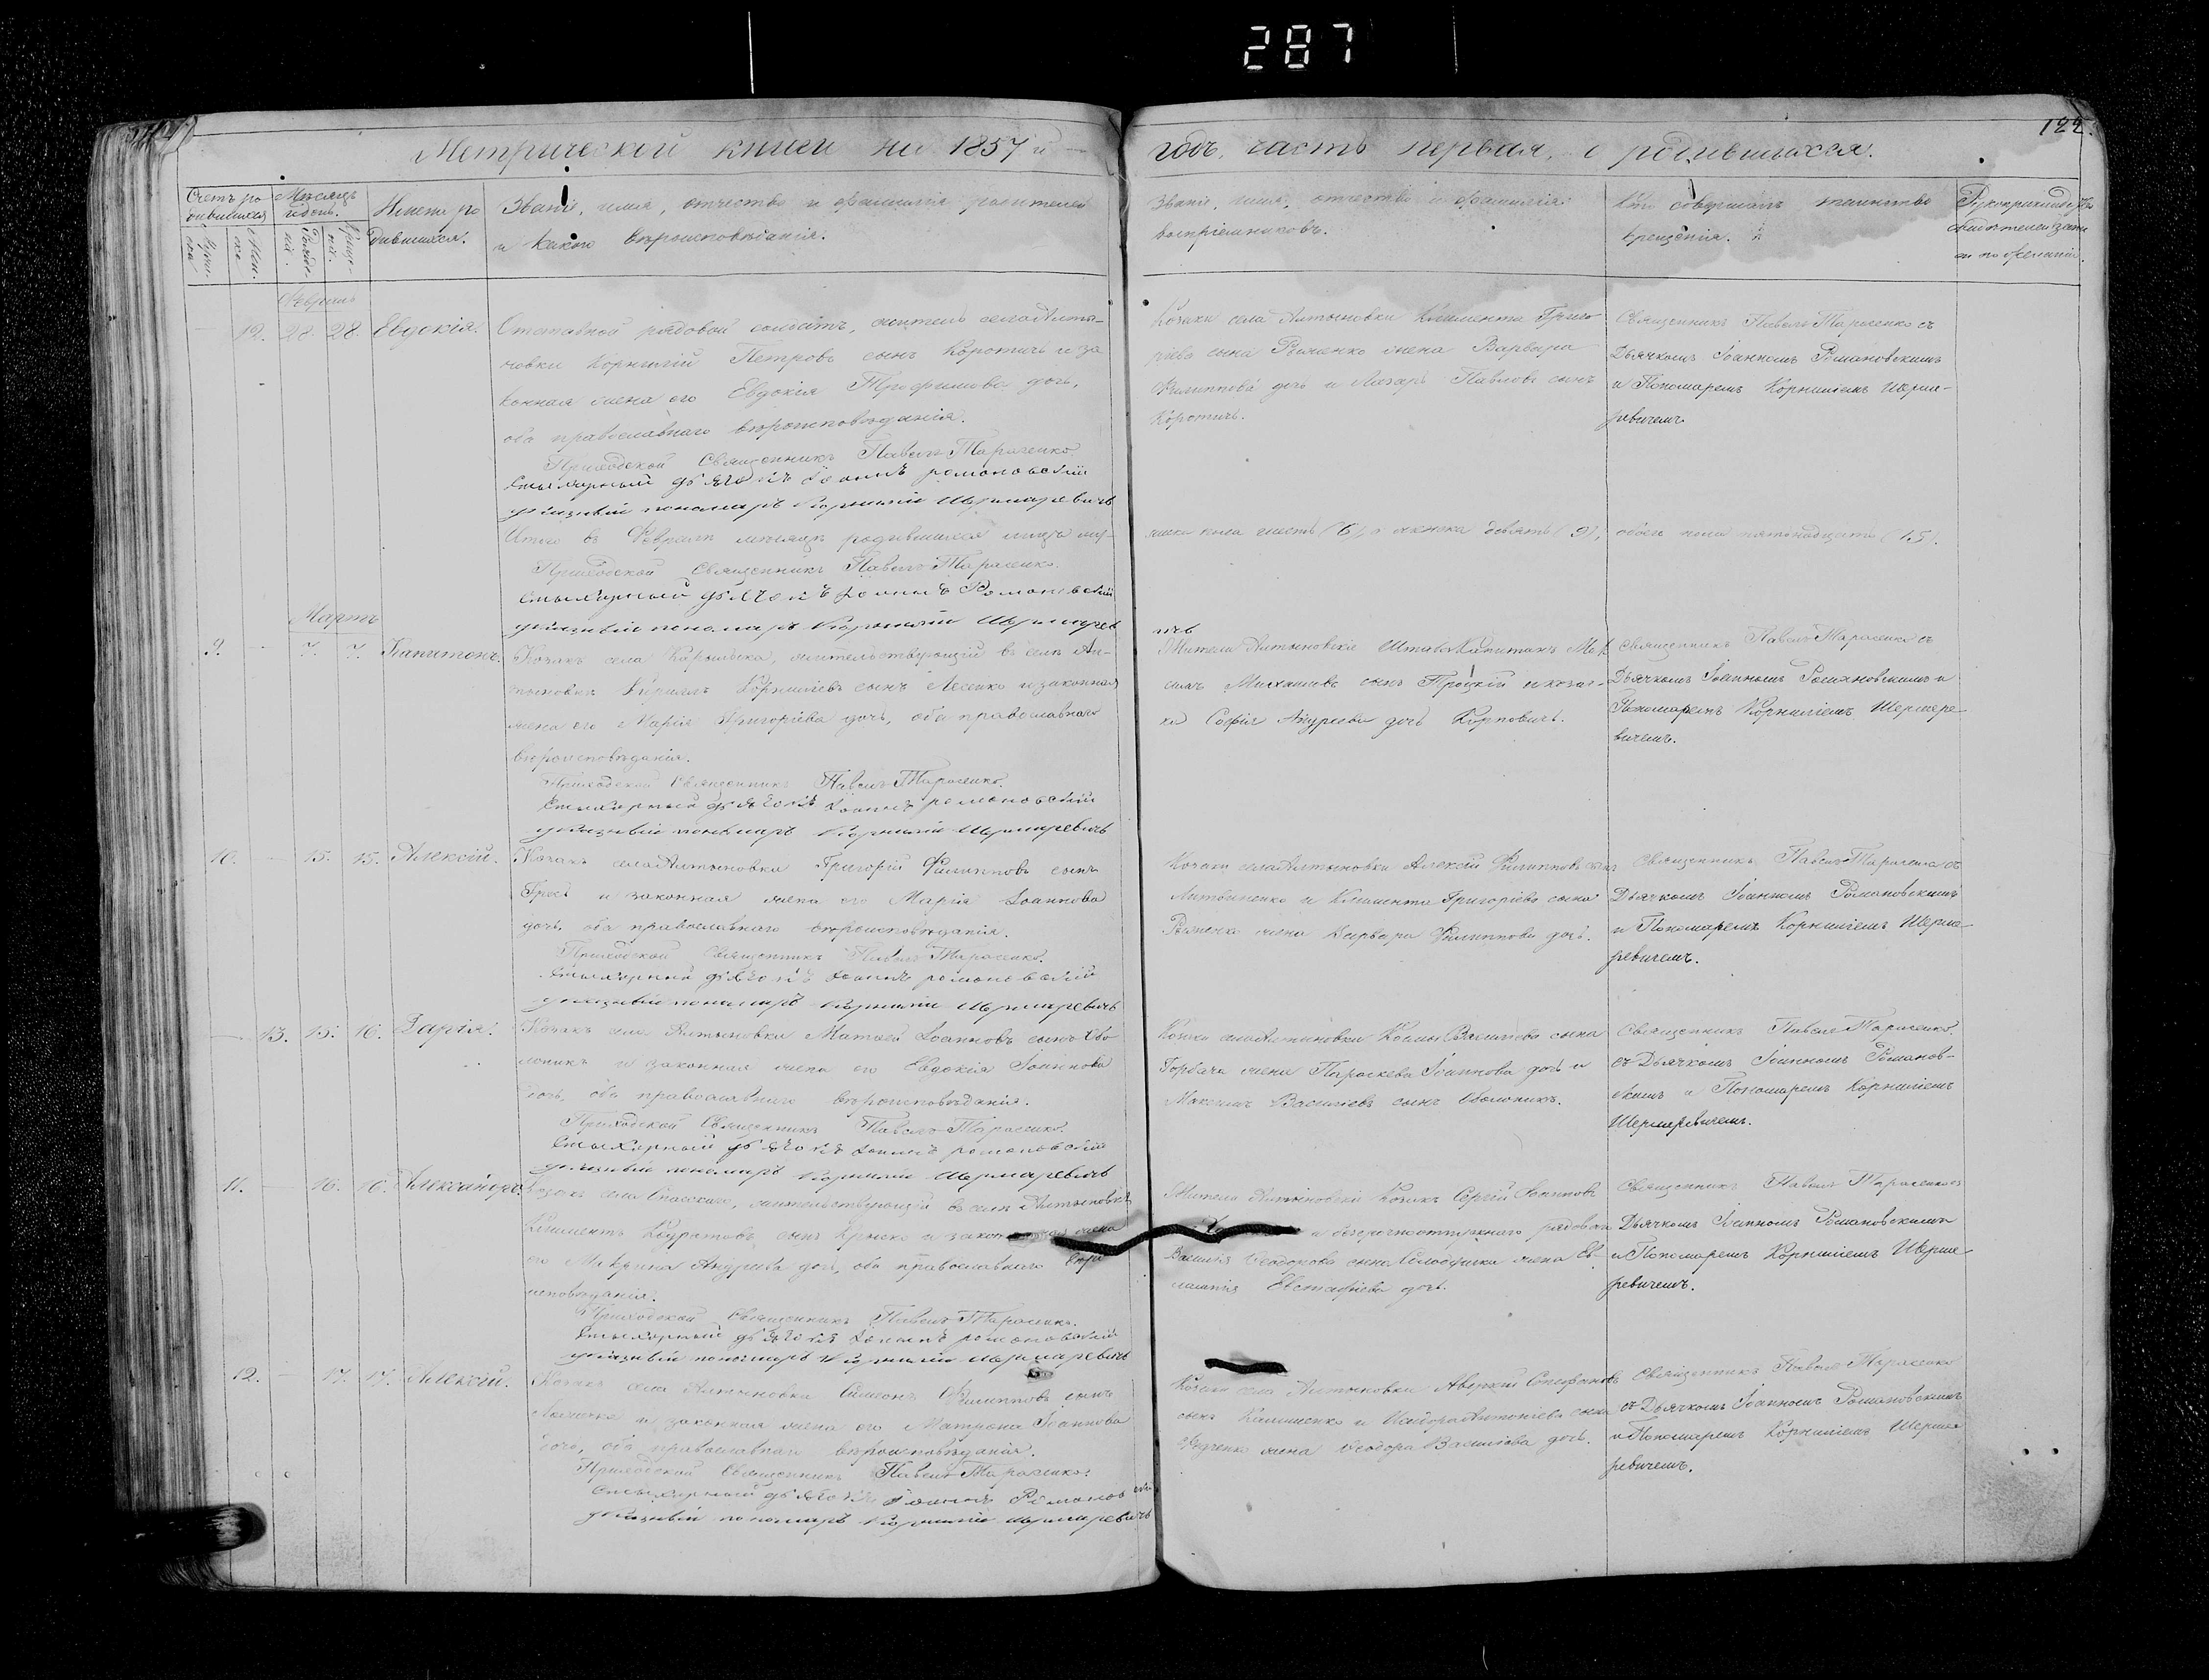 287
122.
Метрической книги на 1857 й
годъ, часть первая, о родившихся.
Счетъ родившихся
Мужеска
Жен.
Мѣсяцъ и день.
Рожденія
Крещенія
Имена родившихся.
Званіе, имя, отчество и фамилія родителей
и какого вѣроисповѣданія.
Званіе, имя, отчество и фамилія
воспріемниковъ.
Кто совершалъ таинство
крещенія.
Рукоприкладство
свидѣтелей записи
по желанію.
Февраль
12. 28. 28. Евдокія.
Отставной рядовой солдатъ, житель села Алты-
новки Корнилій Петровъ сынъ Коротичъ и за
конная жена его Евдокія Трофимова дочь,
оба православнаго вѣроисповѣданія.
Приходской Священникъ Павелъ Тарасенко
Стыхарный дьячокъ Іоаннъ Романовскій
указный пономарь Корнилій Шермаревичъ
Козака села Алтыновки Климента Григо
ріева сына Рыженко жена Варвара
Филиппова дочь и Лазарь Павловъ сынъ
Коротичъ.
Священникъ Павелъ Тарасенко съ
Дьячкомъ Іоанномъ Романовскимъ
и Пономаремъ Корниліемъ Шерма-
ревичемъ.
Итого въ Февралѣ мѣсяцѣ родившихся
мужеска пола шесть (6), а женска девять (9), обоего пола пятнадцать (15).
Приходской Священникъ Павелъ Тарасенко.
Стыхарный дьячокъ Іоаннъ Романовскій
указный пономарь Корнилій Шермарев
ичъ
Мартъ
9. — 7. 7. Капитонъ.
Козакъ села Карыльска, жительствующій въ селѣ Ал-
тыновкѣ Кириллъ Корниліевъ сынъ Лесенко и законная
жена его Марія Григоріева дочь, оба православнаго
вѣроисповѣданія.
Приходской Священникъ Павелъ Тарасенко.
Стыхарный дьячокъ Іоаннъ Романовскій
указный пономарь Корнилій Шермаревичъ
Жители Алтыновскіе Штабсъ Капитанъ Мак
симъ Михаиловъ сынъ Троцкій и козач-
ка Софія Андреева дочь Карповичъ.
Священникъ Павелъ Тарасенко съ
Дьячкомъ Іоанномъ Романовскимъ и
Пономаремъ Корниліемъ Шермаре
вичемъ.
10. — 15. 15. Алексій.
Козакъ села Алтыновки Григорій Филипповъ сынъ
и законная жена его Марія Іоаннова
дочь, оба православнаго вѣроисповѣданія.
Приходской Священникъ Павелъ Тарасенко.
Стыхарный дьячокъ Іоаннъ Романовскій
указный пономарь Корнилій Шермаревичъ
Козаки села Алтыновки Алексій Филипповъ сынъ
Литвиненко и Климента Григоріева сына
Рыженка жена Варвара Филиппова дочь.
Священникъ Павелъ Тарасенко съ
Дьячкомъ Іоанномъ Романовскимъ
и Пономаремъ Корниліемъ Шерма-
ревичемъ.
— 13. 15. 16. Дарія.
Козакъ села Алтыновки Матѳей Іоанновъ сынъ Обо
лоникъ и законная жена его Евдокія Іоаннова
дочь, оба православнаго вѣроисповѣданія.
Приходской Священникъ Павелъ Тарасенко.
Стыхарный дьячокъ Іоаннъ Романовскій
указный пономарь Корнилій Шермаревичъ
Козака села Алтыновки Космы Василіева сына
Горбача жена Параскева Іоаннова дочь и
Максимъ Василіевъ сынъ Оболоникъ.
Священникъ Павелъ Тарасенко
съ Дьячкомъ Іоанномъ Романов-
скимъ и Пономаремъ Корниліемъ
Шермаревичемъ.
11. — 16. 16. Александръ.
Козакъ села Спасскаго, жительствующій въ селѣ Алтыновкѣ
Климентъ Кодратовъ сынъ и законная жена
его Макрина Андреева дочь, оба православнаго вѣро
исповѣданія.
Приходской Священникъ Павелъ Тарасенко.
Стыхарный дьячокъ Іоаннъ Романовскій
указный пономарь Корнилій Шермаревичъ
Жители Алтыновскіе Козакъ Сергій Іоанновъ
и безсрочноотпускнаго рядоваго
Василія Ѳеодорова сына жена Ев-
Евстафіева дочь.
Священникъ Павелъ Тарасенко съ
Дьячкомъ Іоанномъ Романовскимъ
и Пономаремъ Корниліемъ Шерма
ревичемъ.
12. — 17. 17. Алексій.
Козакъ села Алтыновки Симеонъ Филипповъ сынъ
и законная жена его Матрона Іоаннова
дочь, оба православнаго вѣроисповѣданія.
Приходской Священникъ Павелъ Тарасенко.
Стыхарный дьячокъ Іоаннъ Романовскій
указный пономарь Корнилій Шермаревичъ
Козаки села Алтыновки Аверкій Стефановъ
сынъ Калиненко и Исидора Антоніева сына
жена Ѳеодора Василіева дочь.
Священникъ Павелъ Тарасенко
съ Дьячкомъ Іоанномъ Романовскимъ
и Пономаремъ Корниліемъ Шерма
ревичемъ.